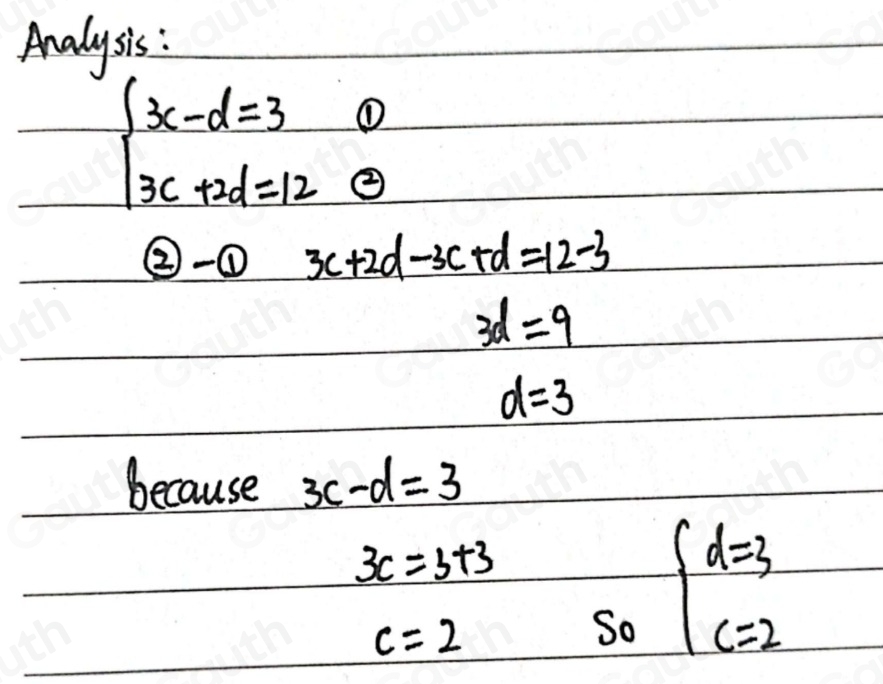 Analysis:
3c-d=3 ①
3c+2d=12 ②
②-① 3c+2d-3c+d=12-3
3d=9
d=3
because 3c-d=3
3c=3+3
c=2
So
d=3
c=2